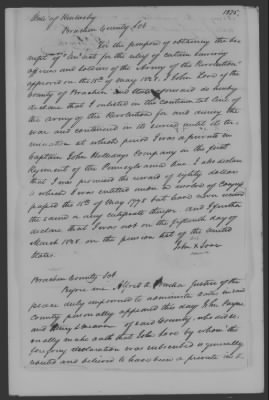 State of Kentucky 1875
Bracken County Sct
For the purpose of obtaining the be
nefit of "An act for the relief of certain surviving
officers and soldiers of the Army of the Revolution"
approved on the 15th of May 1828. I John Love of the
County of Bracken and State do hereby
declare that I enlisted in the Continental line of
the Army of the Revolution for and during the
war and continued in its service until its ter
mination at which period I was a private in
Captain John Holladays Company in the first
Regiment of the Pennsylvania line I also declare
that I was promised the reward of eighty dollars
which I was entitled under a resolve of Congress
passed the 15th of May 1778 but have never received
the same or any certificate therefor and I further
declare that I was not on the fifteenth day of
March 1828. on the pension list of the United
States.
John Love
Bracken County Sct
Before me a Justice of the
peace duly empowered to administer oaths in said
County personally appeared this day John Payne
and of said County. who did se
verally make oath that John Love by whom the
foregoing declaration was subscribed is generally
reputed and believed to have been a private in the